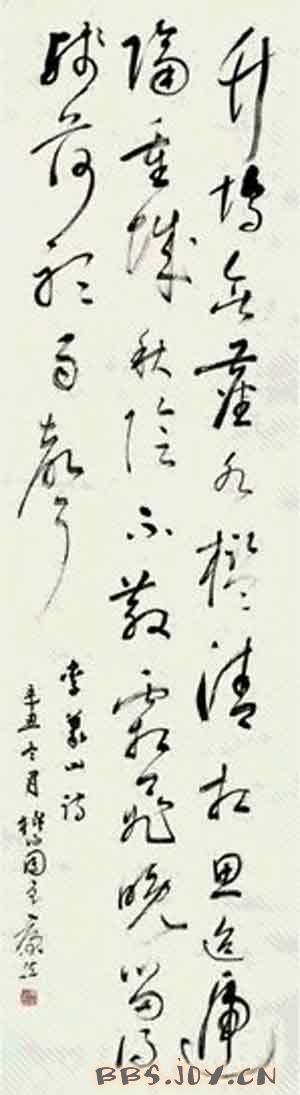 竹塢無塵水檻清相思迢遞
隔重城秋陰不散霜飛晚留得
殘荷聽雨聲
李義山詩
辛丑冬月
BBS.JOY.CN